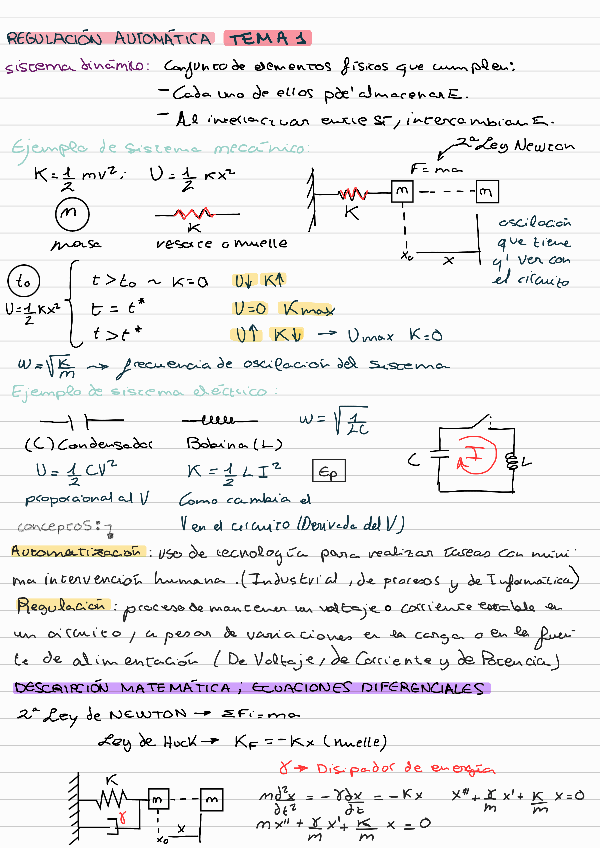 REGULACIÓN AUTOMÁTICA TEMA 1
sistema dinámico: Conjunto de elementos físicos que cumplen:
- Cada uno de ellos pde' almacenar E.
- Al interactuar entre sí, intercambian E.
Ejemplo de sistema mecánico:
2ª Ley Newton
F=ma
K=1/2 mv²; U=1/2 Kx²
m
K
K
m m
masa resorte o muelle
x₀ x
oscilación
que tiene
q' ver con
el circuito
t₀
U=1/2 Kx²
t>t₀ ~ K=0 U↓ K↑
t = t* U=0 Kmax
t>t* U↑ K↓ → Umax K=0
ω=√K/m → frecuencia de oscilación del sistema
Ejemplo de sistema eléctrico:
ω=√1/LC
(C) Condensador Bobina (L)
C I L
U=1/2 CV² K=1/2 L I² Ep
proporcional al V Como cambia el
V en el circuito (Derivada del V)
conceptos:
Automatización: uso de tecnología para realizar tareas con míni-
ma intervención humana. (Industrial, de procesos y de Informática)
Regulación: proceso de mantener un voltaje o corriente estable en
un circuito, a pesar de variaciones en la carga o en la fuen-
te de alimentación (De Voltaje, de Corriente y de Potencia)
DESCRIPCIÓN MATEMÁTICA; ECUACIONES DIFERENCIALES
2ª Ley de NEWTON → ΣFi=ma
Ley de Hock → KF=-Kx (muelle)
γ → Disipador de energía
K
γ
m m
x₀ x
m∂²x/∂t² = -γ∂x/∂t = -Kx x''+γ/m x'+K/m x=0
mx''+γ/m x'+K/m x=0